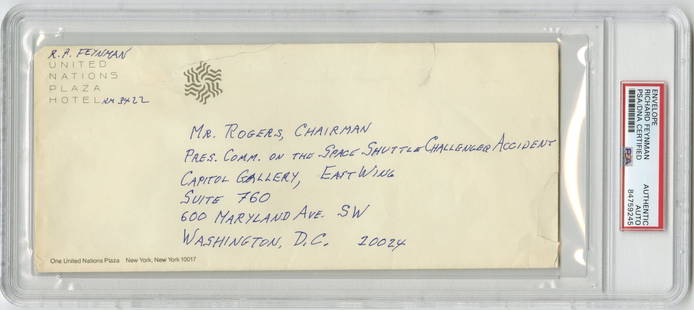 R. A. FEYNMAN
UNITED
NATIONS
PLAZA
HOTEL RM 3422
MR. ROGERS, CHAIRMAN
PRES. COMM. ON THE SPACE SHUTTLE CHALLENGER ACCIDENT
CAPITOL GALLERY, EAST WING
SUITE 760
600 MARYLAND AVE. SW
WASHINGTON, D.C. 20024
One United Nations Plaza New York, New York 10017
ENVELOPE
RICHARD FEYNMAN
PSA/DNA CERTIFIED
PSA
AUTHENTIC
AUTO
84759245